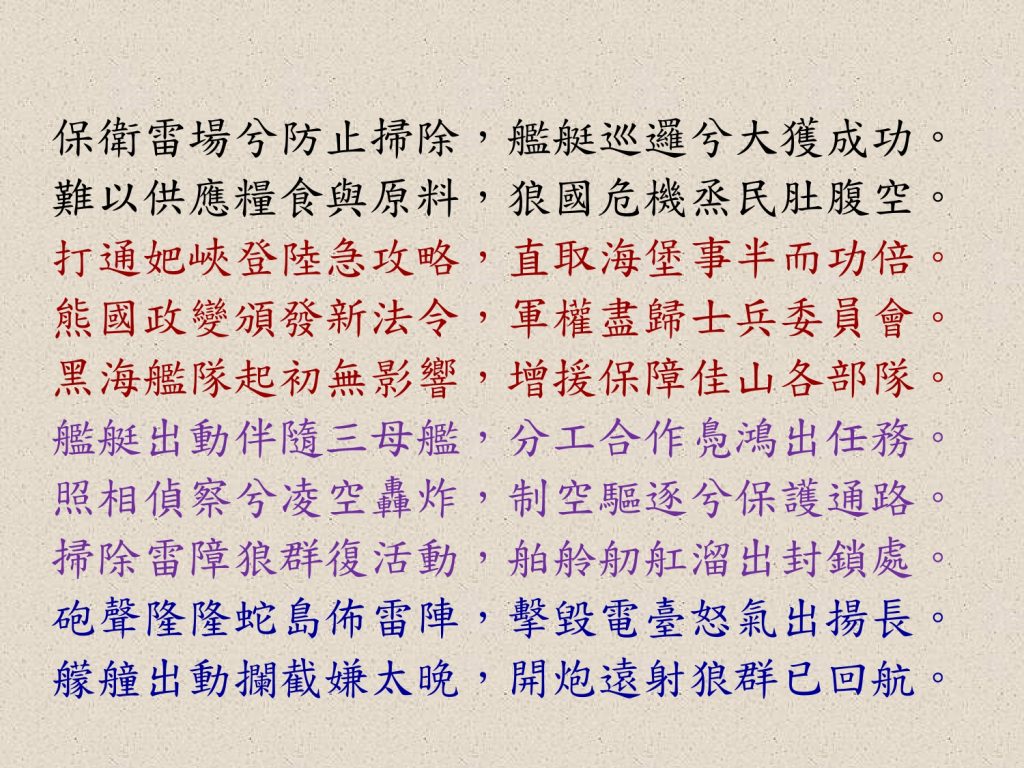 保衛雷場兮防止掃除，艦艇巡邏兮大獲成功。
難以供應糧食與原料，狼國危機烝民肚腹空。
打通妑峽登陸急攻略，直取海堡事半而功倍。
熊國政變頒發新法令，軍權盡歸士兵委員會。
黑海艦隊起初無影響，增援保障佳山各部隊。
艦艇出動伴隨三母艦，分工合作鳧鴻出任務。
照相偵察兮凌空轟炸，制空驅逐兮保護通路。
掃除雷障狼群復活動，舶舲舠舡溜出封鎖處。
砲聲隆隆蛇島佈雷陣，擊毀電臺怒氣出揚長。
艨艟出動攔截嫌太晚，開炮遠射狼群已回航。